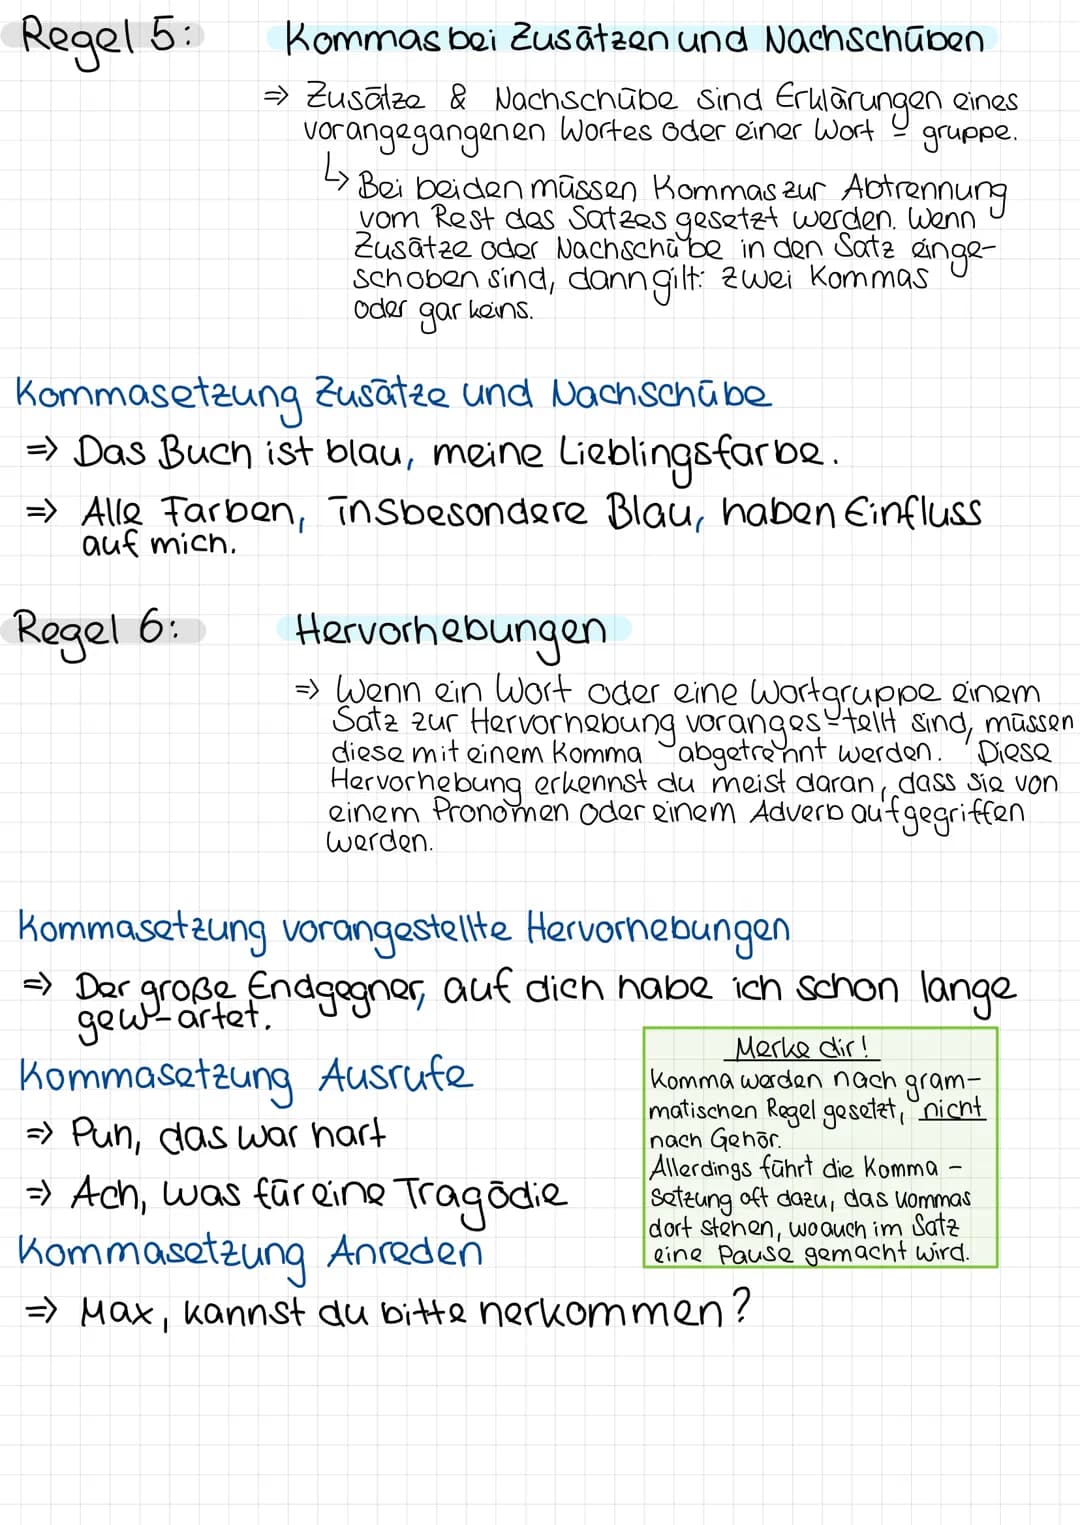 Regel 5: Kommas bei Zusätzen und Nachschüben
=> Zusätze & Nachschübe sind Erklärungen eines
vorangegangenen Wortes oder einer Wort =
gruppe.
↳ Bei beiden müssen Kommas zur Abtrennung
vom Rest des Satzes gesetzt werden. Wenn
Zusätze oder Nachschübe in den Satz einge-
schoben sind, dann gilt: zwei Kommas
oder gar keins.
Kommasetzung Zusätze und Nachschübe
=> Das Buch ist blau, meine Lieblingsfarbe.
=> Alle Farben, insbesondere Blau, haben Einfluss
auf mich.
Regel 6: Hervorhebungen
=> Wenn ein Wort oder eine Wortgruppe einem
Satz zur Hervorhebung voranges=tellt sind, müssen
diese mit einem Komma abgetrennt werden. Diese
Hervorhebung erkennst du meist daran, dass sie von
einem Pronomen oder einem Adverb aufgegriffen
werden.
Kommasetzung vorangestellte Hervorhebungen
=> Der große Endgegner, auf dich habe ich schon lange
gew=artet.
Kommasetzung Ausrufe
=> Puh, das war hart
=> Ach, was für eine Tragödie
Kommasetzung Anreden
=> Max, kannst du bitte herkommen?
Merke dir!
Komma werden nach gram-
matischen Regel gesetzt, nicht
nach Gehör.
Allerdings führt die Komma -
setzung oft dazu, das Kommas
dort stehen, wo auch im Satz
eine Pause gemacht wird.